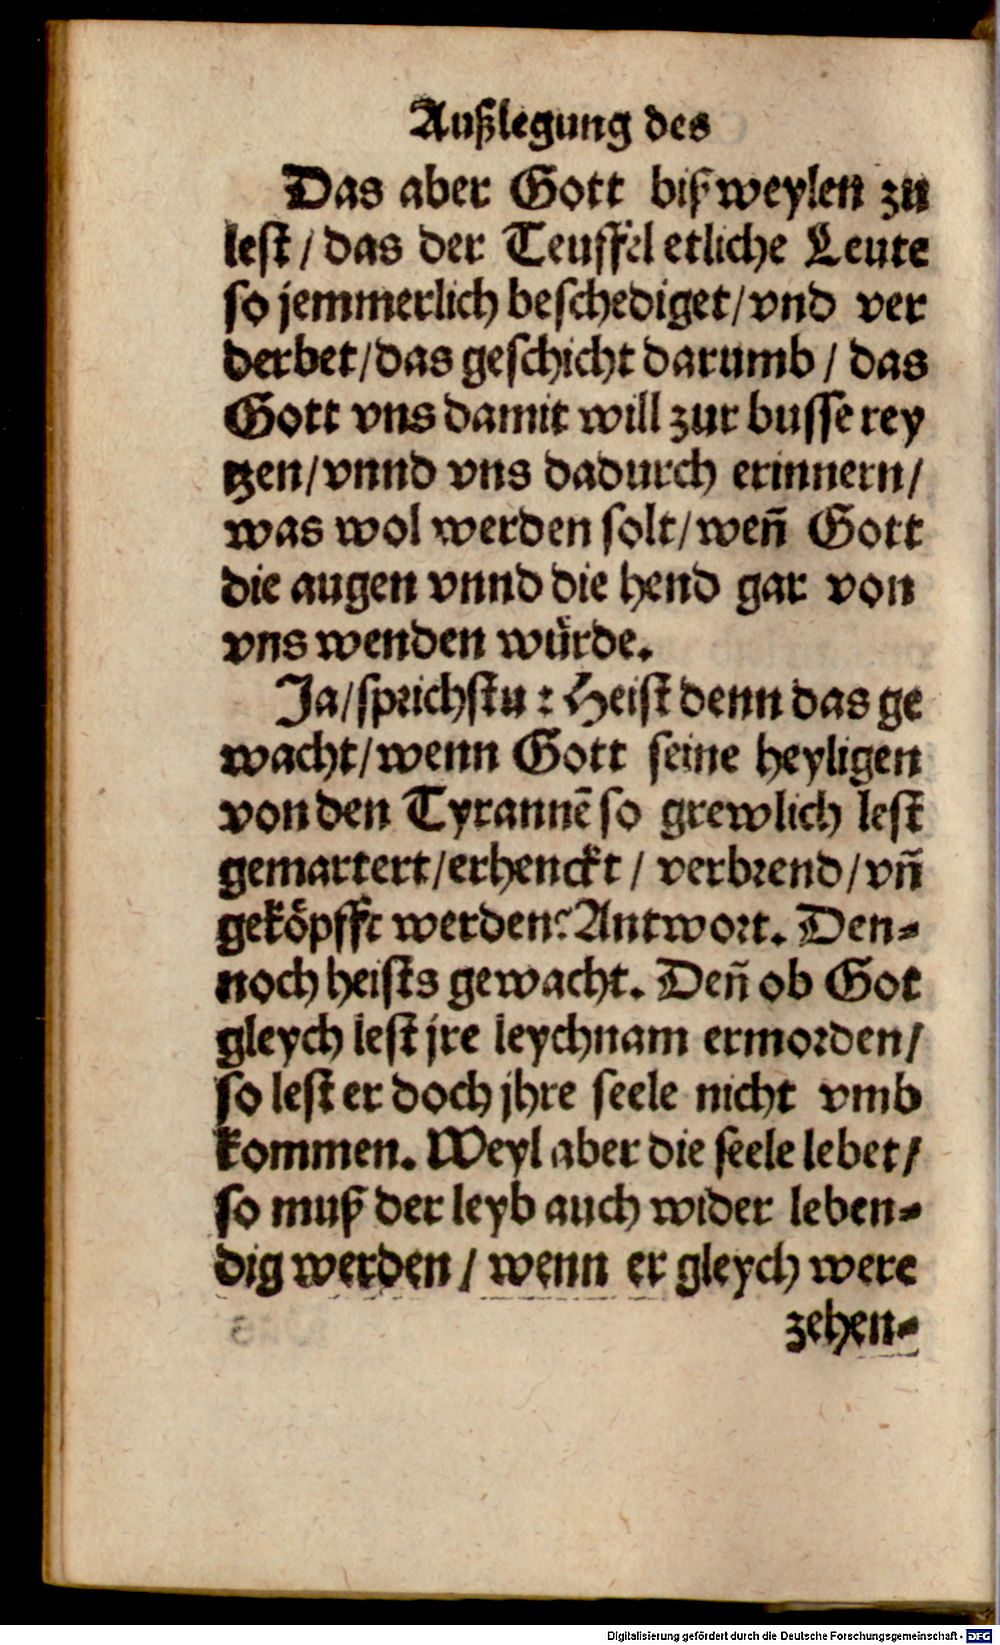 Außlegung des
Das aber Gott bißweylen zu
lest / das der Teuffel etliche Leute
so jemmerlich beschediget / vnd ver
derbet / das geschicht darumb / das
Gott vns damit will zur busse rey
tzen / vnnd vns dadurch erinnern /
was wol werden solt / weñ Gott
die augen vnnd die hend gar von
vns wenden würde.
Ja / sprichstu : Heist denn das ge
wacht / wenn Gott seine heyligen
von den Tyrannē so grewlich lest
gemartert / erhenckt / verbrend / vñ
geköpfft werden? Antwort. Den-
noch heists gewacht. Deñ ob Got
gleych lest jre leychnam ermorden /
so lest er doch jhre seele nicht vmb
kommen. Weyl aber die seele lebet /
so muß der leyb auch wider leben-
dig werden / wenn er gleych were
zehen-
Digitalisierung gefördert durch die Deutsche Forschungsgemeinschaft - DFG